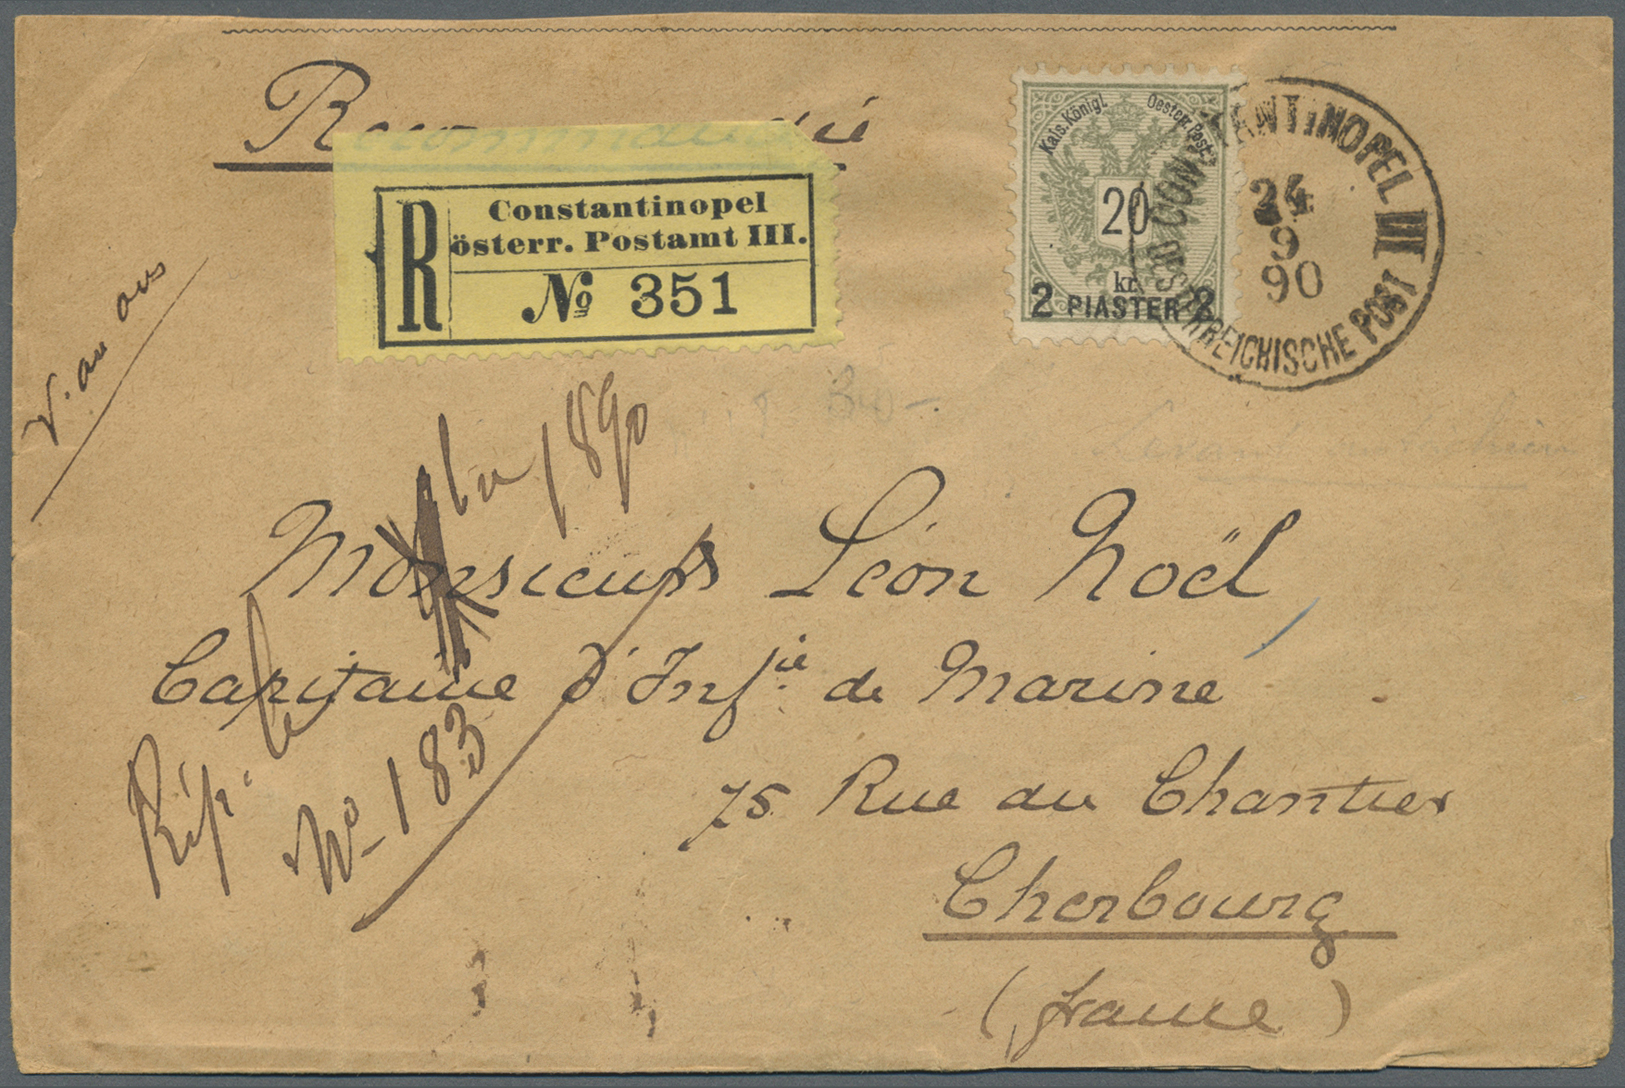 Recommandée
R
Constantinopel
österr. Postamt III.
№ 351
Kais. Königl. Oesterr. Post.
20
kr.
2 PIASTER 2
CONSTANTINOPEL III
24
9
90
OESTERREICHISCHE POST
1890
Monsieur Léon Noël
Capitaine d'Infie de Marine
75 Rue du Chantier
Cherbourg
(france)
Rép. le
No 183